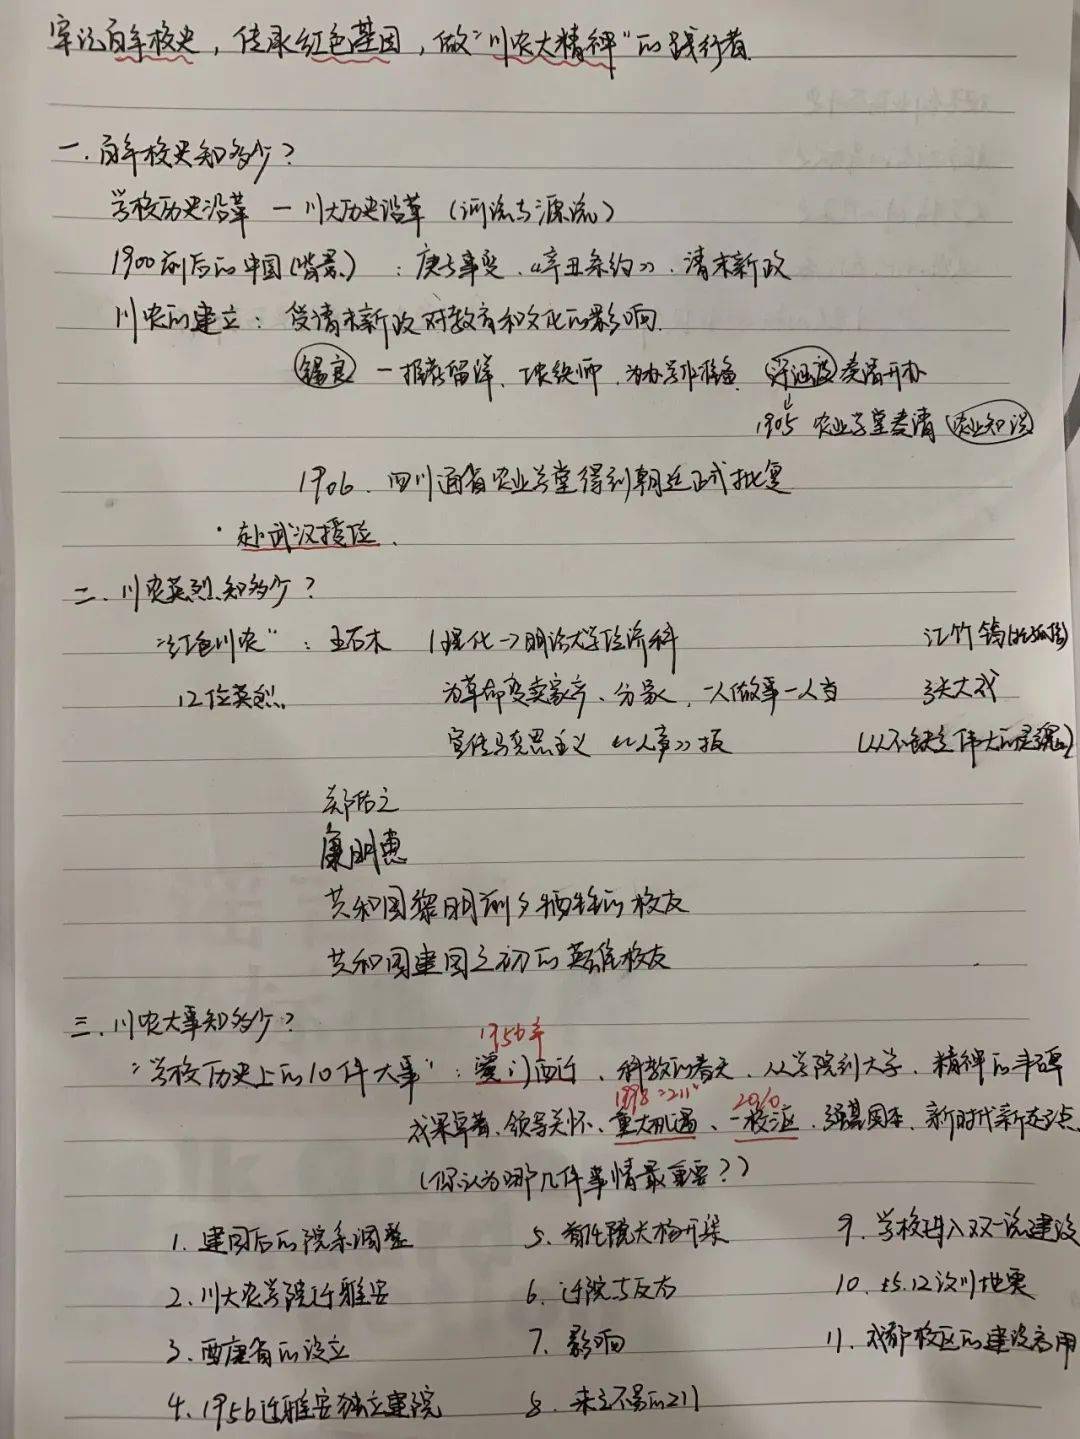 牢记百年校史，传承红色基因，做"川农大精神"的践行者.
一. 百年校史知多少？
学校历史沿革 — 川大历史沿革（河流与源流）
1900前后的中国（背景）：庚子事变、《辛丑条约》、清末新政
川农的建立：受清末新政对教育和文化的影响.
锡良 — 推荐留洋、 为办学非准备 奏请开办
1905 农业学堂奏请 农业知识
1906、四川通省农业学堂得到朝廷正式批复
· 赴武汉接阵、
二、川农英烈知多少？
"红色川农"：王右木 理化→明治大学经济科 江竹筠
12位英烈 为革命变卖家产、分家，一人做事一人当
宣传马克思主义 《人声》报
郑佑之
康明惠
共和国黎明前夕牺牲的校友
共和国建国之初的英雄校友
三、川农大事知多少？
1956年
"学校历史上的10件大事"：整门西迁、科教的春天、从学院到大学、精神的丰碑
1998 "211" 2010
成果卓著、领导关怀、重大机遇、一校三区、强基固本、新时代新起点
（你认为哪几件事情最重要？）
1. 建国后的院系调整 5. 首任院长杨开渠 9. 学校进入双一流建设
2. 川大农学院迁雅安 6. 迁院与反右 10. 5.12汶川地震
3. 西康省的设立 7. 影响 11. 成都校区的建设启用
4. 1956迁雅安独立建院 8. 来之不易的211